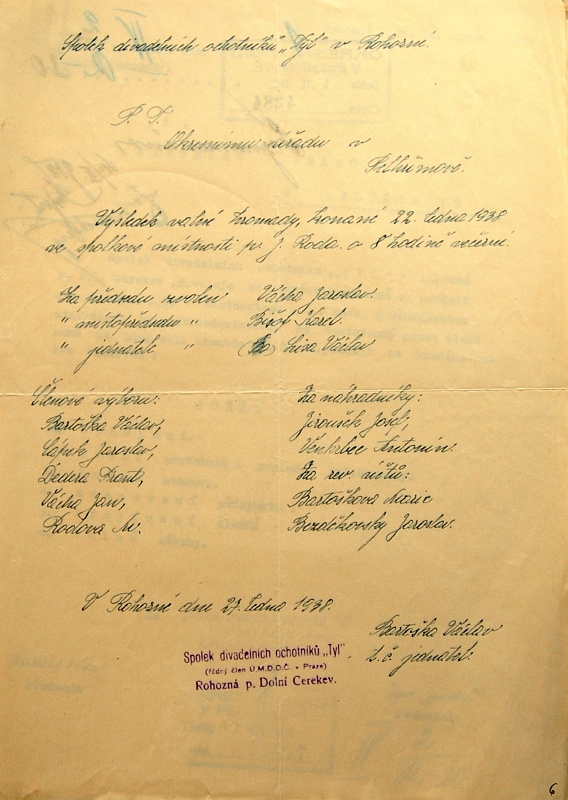 Spolek divadelních ochotníků „Tyl" v Rohozné.
P. T.
Okresnímu úřadu v
Pelhřimově.
Výsledek valné hromady, konané 22. ledna 1938
ve spolkové místnosti p. J. Roda. o 8 hodině večerní.
Za předsedu zvolen Vácha Jaroslav.
" místopředsedu " Karel.
" jednatel " Líva Václav
Členové výboru:
Bartoška Václav,
Cápek Jaroslav,
Dedera Frant,
Vácha Jan,
Rodova M.
Za náhradníky:
Jiroušek Josef,
Venhrbec Antonín.
Za rev. účtů:
Bartoškova Marie
Bezděkovsky Jaroslav.
V Rohozné dne 27. ledna 1938.
Bartoška Václav
t. č. jednatel.
Spolek divadelních ochotníků „Tyl"
(řádný člen Ú.M.D.O.Č. v Praze)
Rohozná p. Dolní Cerekev.
6